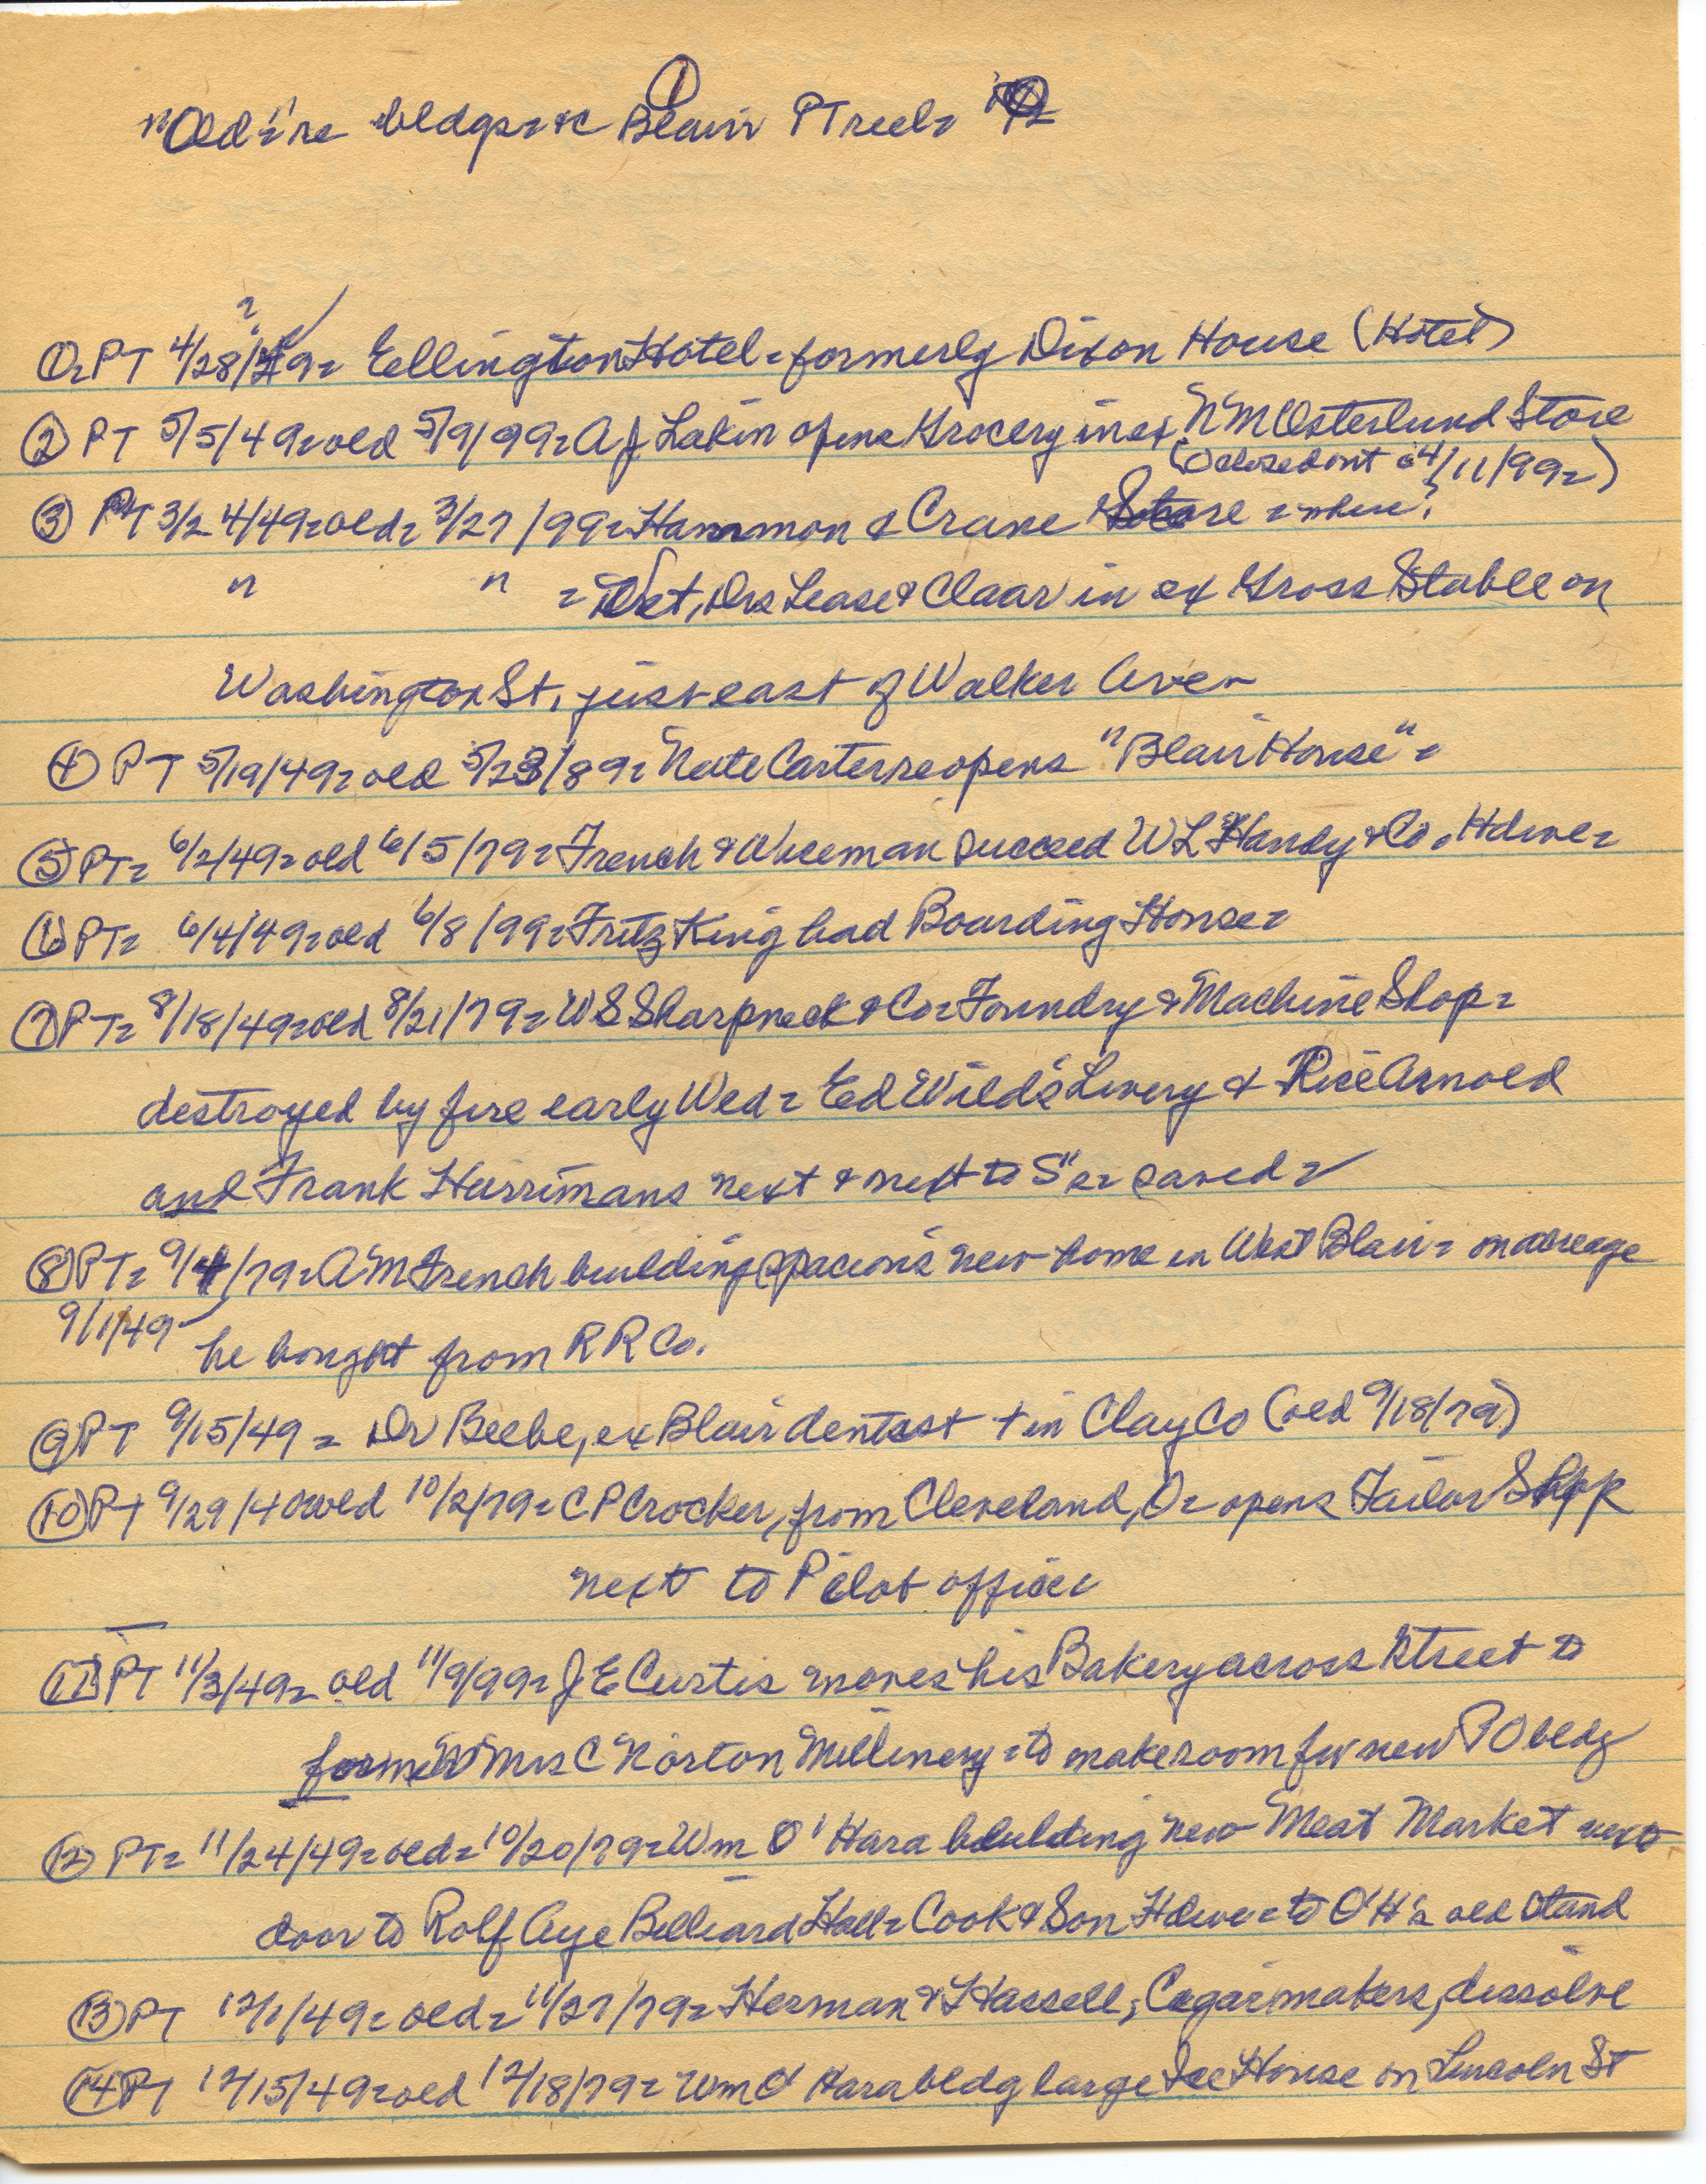 ①
"Old" re bldgs &c Blair PT reel=
?
①=PT 4/28/49= Eellington Hotel=formerly Dixon House (Hotel)
② PT 5/5/49=old 5/9/99=A J Lakin opens Grocery in ex N M Osterlund Store
(closed out 4/11/99=)
③ PT 3/24/49=old= 3/27/99=Hammon & Crane Store=where?
" " =Vet, Drs Lease & Claar in ex Gross Stable on
Washington St, just east of Walker Ave=
④ PT 5/19/49=old 5/23/89=Nate Carter reopens "Blair House"=
⑤ PT= 6/2/49=old 6/5/79=French & Wiseman succeed W L Handy & Co. Hdwe=
⑥ PT= 6/4/49=old 6/8/99=Fritz King had Boarding House=
⑦ PT= 8/18/49=old 8/21/79=W S Sharpneck & Co=Foundry & Machine Shop=
destroyed by fire early Wed= Ed Wild's Livery & Rice Arnold
and Frank Harrimans next & next to S"s= saved=
⑧ PT= 9/4/79=A M French building spacious new home in West Blair= on acreage
9/1/49 he bought from R R Co.
⑨ PT 9/15/49= Dr Beebe, ex Blair dentist + in Clay Co (old 9/18/79)
⑩ PT 9/29/40 old 10/2/79=C P Crocker, from Cleveland, O= opens Tailor Shop
next to Pilot office
⑪ PT 11/3/49= old 11/9/99=J E Curtis moves his Bakery across street to
former Mrs C Norton Millinery=to make room for new P O bldg
⑫ PT= 11/24/49=old=10/20/79=Wm O'Hara building new Meat Market next
door to Rolf Aye Billiard Hall=Cook & Son Hdwe=to O'H's old stand
⑬ PT 12/1/49=old=11/27/79=Herman & Hassell, Cigarmakers, dissolve
⑭ PT 12/15/49=old 12/18/79=Wm O'Hara bldg large Ice House on Lincoln St